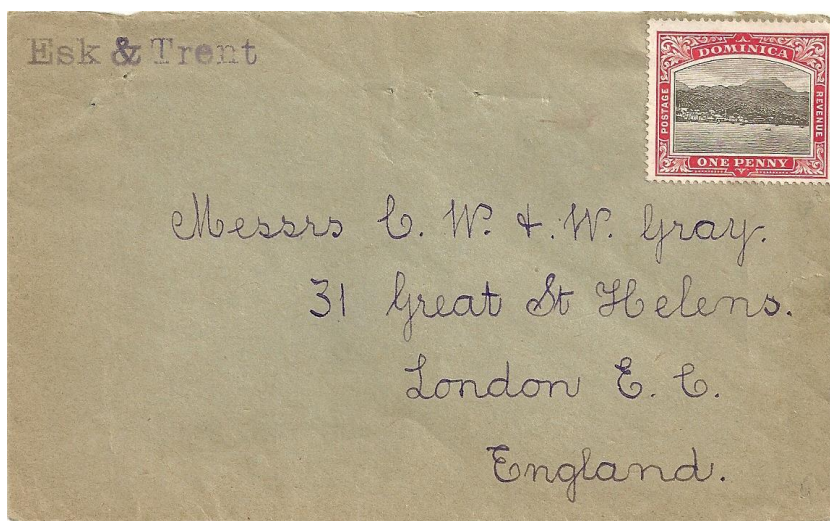 Esk & Trent
DOMINICA
POSTAGE
REVENUE
ONE PENNY
Messrs C. W. & W. Gray.
31 Great St Helens.
London E. C.
England.